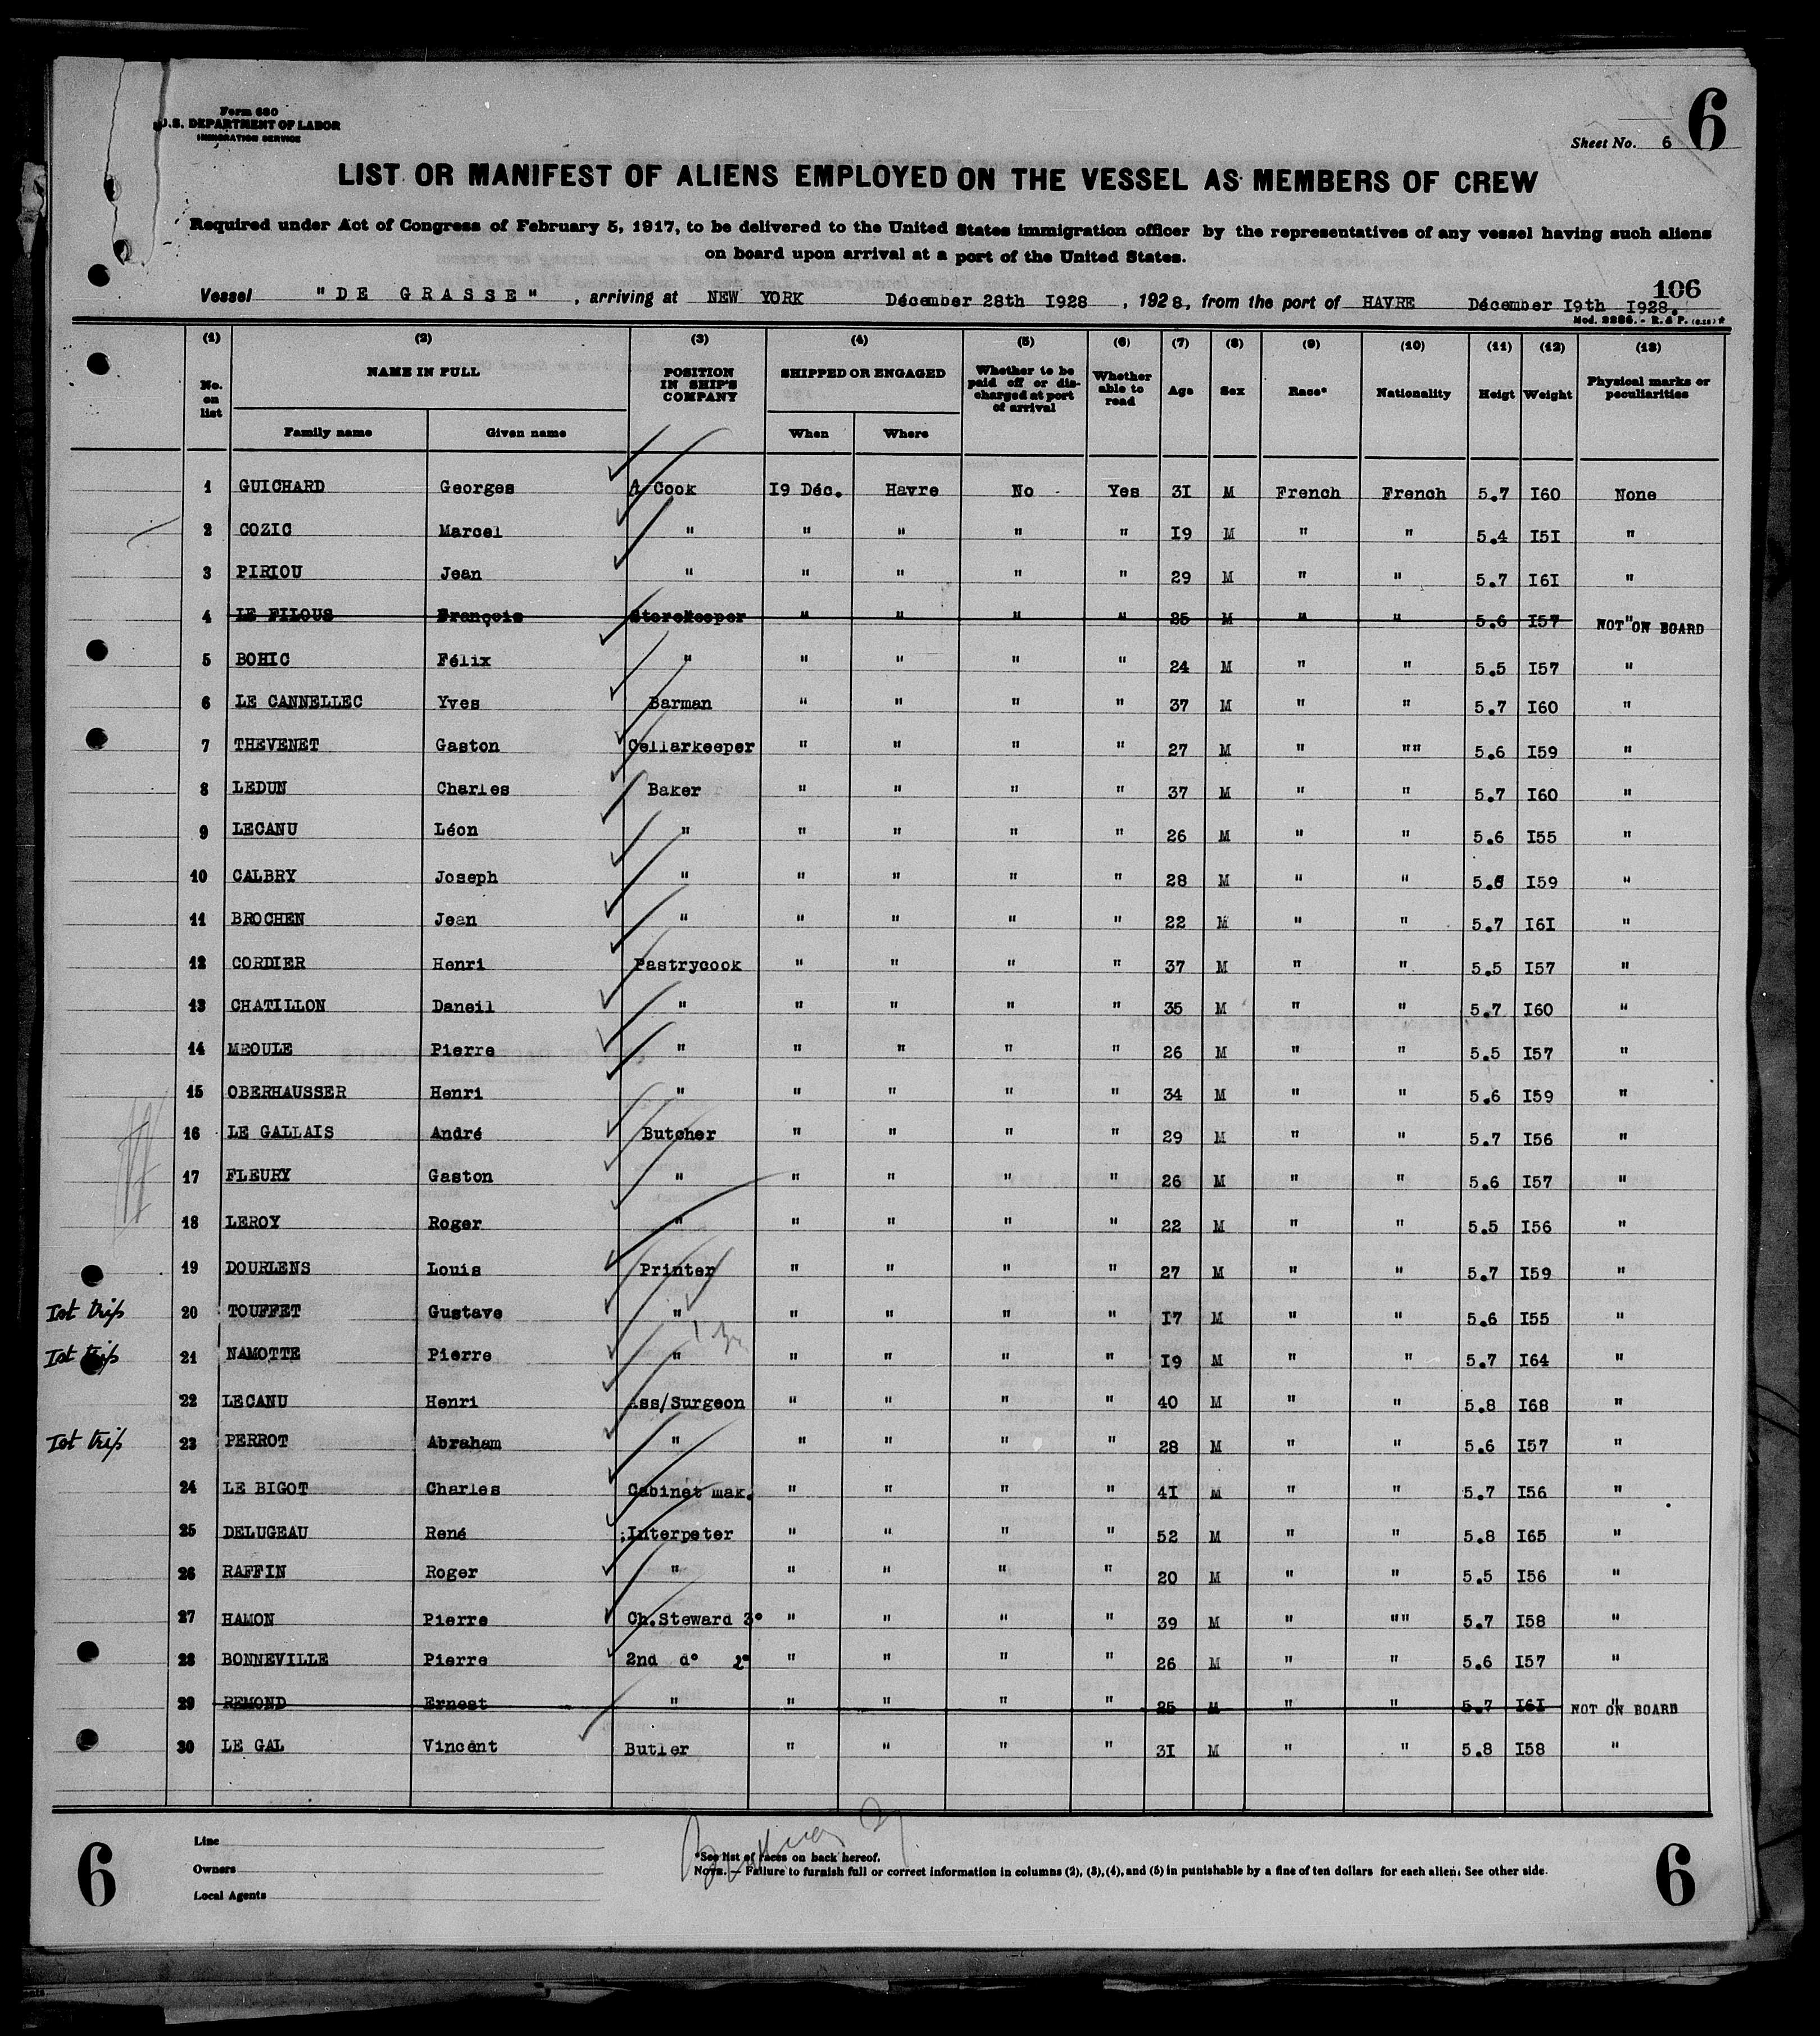 Form 680
U.S. DEPARTMENT OF LABOR
IMMIGRATION SERVICE
Sheet No. 6
6
LIST OR MANIFEST OF ALIENS EMPLOYED ON THE VESSEL AS MEMBERS OF CREW
Required under Act of Congress of February 5, 1917, to be delivered to the United States immigration officer by the representatives of any vessel having such aliens
on board upon arrival at a port of the United States.
106
Vessel "DE GRASSE", arriving at NEW YORK Décember 28th I928, 1928, from the port of HAVRE Décember I9th I928.
Mod. 2286. - R. & P. (6.28) *
(1) (2) (3) (4) (5) (6) (7) (8) (9) (10) (11) (12) (13)
No. on list NAME IN FULL POSITION IN SHIP'S COMPANY SHIPPED OR ENGAGED Whether to be paid off or discharged at port of arrival Whether able to read Age Sex Race* Nationality Heigt Weight Physical marks or peculiarities
Family name Given name When Where
1 GUICHARD Georges A Cook I9 Déc. Havre No Yes 3I M French French 5.7 I60 None
2 COZIC Marcel " " " " " I9 M " " 5.4 I5I "
3 PIRIOU Jean " " " " " 29 M " " 5.7 I6I "
4 LE FILOUS François Storekeeper " " " " 25 M " " 5.6 I57 " NOT ON BOARD
5 BOHIC Félix " " " " " 24 M " " 5.5 I57 "
6 LE CANNELLEC Yves Barman " " " " 37 M " " 5.7 I60 "
7 THEVENET Gaston Cellarkeeper " " " " 27 M " "" 5.6 I59 "
8 LEDUN Charles Baker " " " " 37 M " " 5.7 I60 "
9 LECANU Léon " " " " " 26 M " " 5.6 I55 "
10 CALBRY Joseph " " " " " 28 M " " 5.6 I59 "
11 BROCHEN Jean " " " " " 22 M " " 5.7 I6I "
12 CORDIER Henri Pastrycook " " " " 37 M " " 5.5 I57 "
13 CHATILLON Daneil " " " " " 35 M " " 5.7 I60 "
14 MEOULE Pierre " " " " " 26 M " " 5.5 I57 "
15 OBERHAUSSER Henri " " " " " 34 M " " 5.6 I59 "
16 LE GALLAIS André Butcher " " " " 29 M " " 5.7 I56 "
17 FLEURY Gaston " " " " " 26 M " " 5.6 I57 "
18 LEROY Roger " " " " " 22 M " " 5.5 I56 "
19 DOURLENS Louis Printer " " " " 27 M " " 5.7 I59 "
Ist trip 20 TOUFFET Gustave " " " " " I7 M " " 5.6 I55 "
Ist trip 21 NAMOTTE Pierre " " " " " I9 M " " 5.7 I64 "
22 LECANU Henri Ass/Surgeon " " " " 40 M " " 5.8 I68 "
Ist trip 23 PERROT Abraham " " " " " 28 M " " 5.6 I57 "
24 LE BIGOT Charles Cabinét mak. " " " " 4I M " " 5.7 I56 "
25 DELUGEAU René Interpeter " " " " 52 M " " 5.8 I65 "
26 RAFFIN Roger " " " " " 20 M " " 5.5 I56 "
27 HAMON Pierre Ch.Steward 3° " " " " 39 M " "" 5.7 I58 "
28 BONNEVILLE Pierre 2nd d° 2° " " " " 26 M " " 5.6 I57 "
29 REMOND Ernest " " " " " 25 M " " 5.7 I6I " NOT ON BOARD
30 LE GAL Vincent Butler " " " " 3I M " " 5.8 I58 "
Line
Owners
Local Agents
*See list of races on back hereof.
NOTE. — Failure to furnish full or correct information in columns (2), (3), (4), and (5) in punishable by a fine of ten dollars for each alien. See other side.
6
6